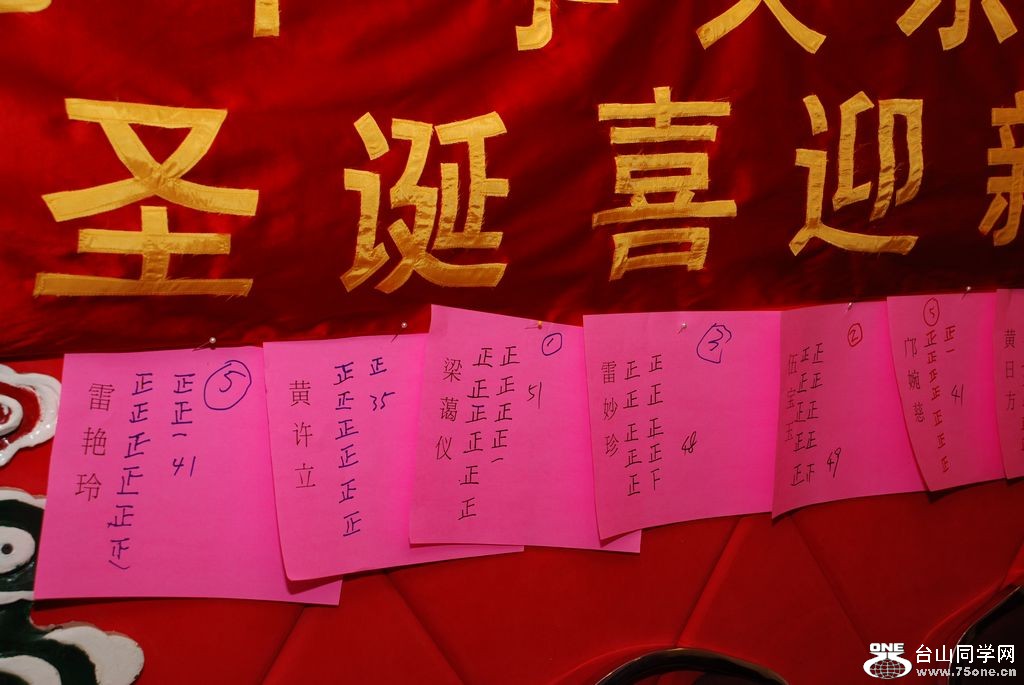 圣诞喜迎新
雷艳玲
正正正正正正
正正一
41
⑤
黄许立
正正正正正正
正
35
梁蔼仪
正正正正正正
正正正正一
51
①
雷妙珍
正正正正正
正正正正下
48
③
伍宝玉
正正正正正
正正正正下
49
②
邝婉慈
正正正正正正
正一
41
⑤
黄日方
ONE
台山同学网
www.75one.cn